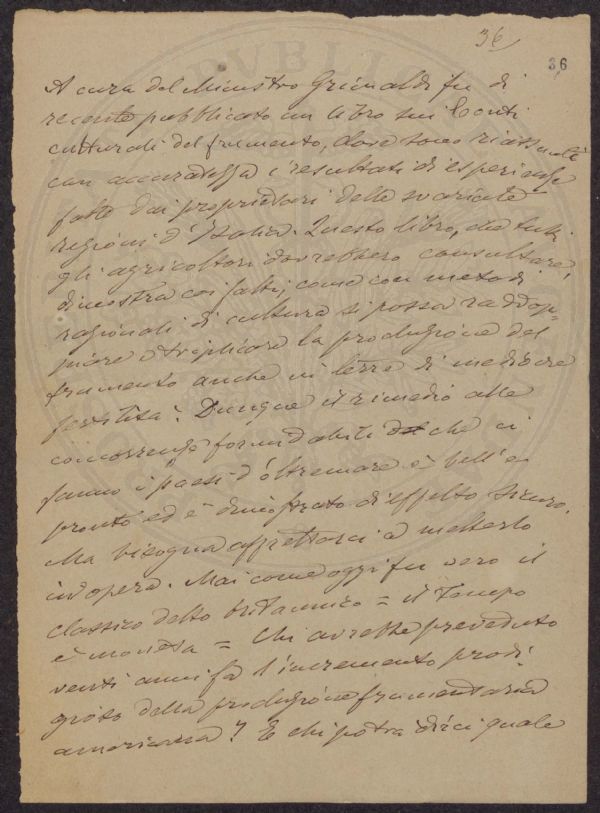 36
36
A cura del Ministro Grimaldi fu di
recente pubblicato un libro sui Conti
culturali del frumento, dove sono riassunti
con accuratezza i resultati di esperienze
fatte dai proprietari delle svariate
regioni d'Italia. Questo libro, che tutti
gli agricoltori dovrebbero consultare,
dimostra coi fatti, come con metodi
razionali di cultura si possa raddop-
piare e triplicare la produzione del
frumento anche in terre di mediocre
fertilità. Dunque il rimedio alle
concorrenze formidabili che ci
fanno i paesi d'oltremare è bell'e
pronto ed è dimostrato di effetto sicuro.
Ma bisogna affrettarci a metterlo
in opera. Mai come oggi fu vero il
classico detto britannico = il tempo
è moneta = Chi avrebbe preveduto
venti anni fa l'incremento prodi-
gioso della produzione frumentaria
americana? E chi potrà dirci quale